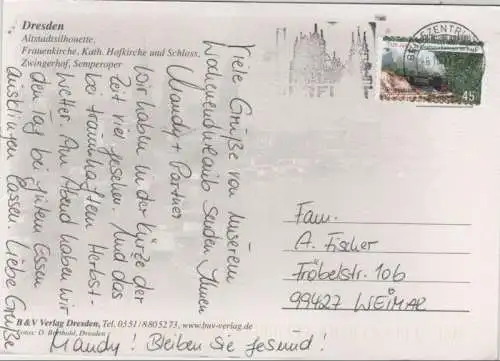 Dresden
Altstadtsilhouette,
Frauenkirche, Kath. Hofkirche und Schloss,
Zwingerhof, Semperoper
BRIEFZENTRUM
45
Viele Grüße von unserem
Wochenendurlaub senden Ihnen
Mandy + Partner
Wir haben in der Kürze der
Zeit viel gesehen. Und das
bei traumhaftem Herbst-
wetter. Am Abend haben wir
den Tag bei gutem Essen
ausklingen lassen. Liebe Grüße
Mandy! Bleiben Sie gesund!
Fam.
A. Fischer
Fröbelstr. 10b
99427 WEIMAR
B & V Verlag Dresden, Tel. 0351/8805273, www.buv-verlag.de
Fotos: D. Berthold, Dresden